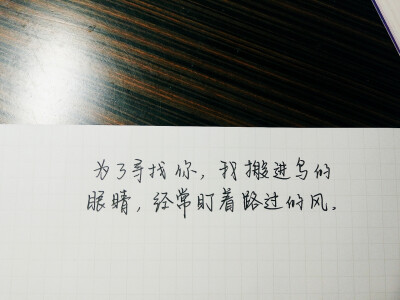 为了寻找你，我搬进鸟的
眼睛，经常盯着路过的风。